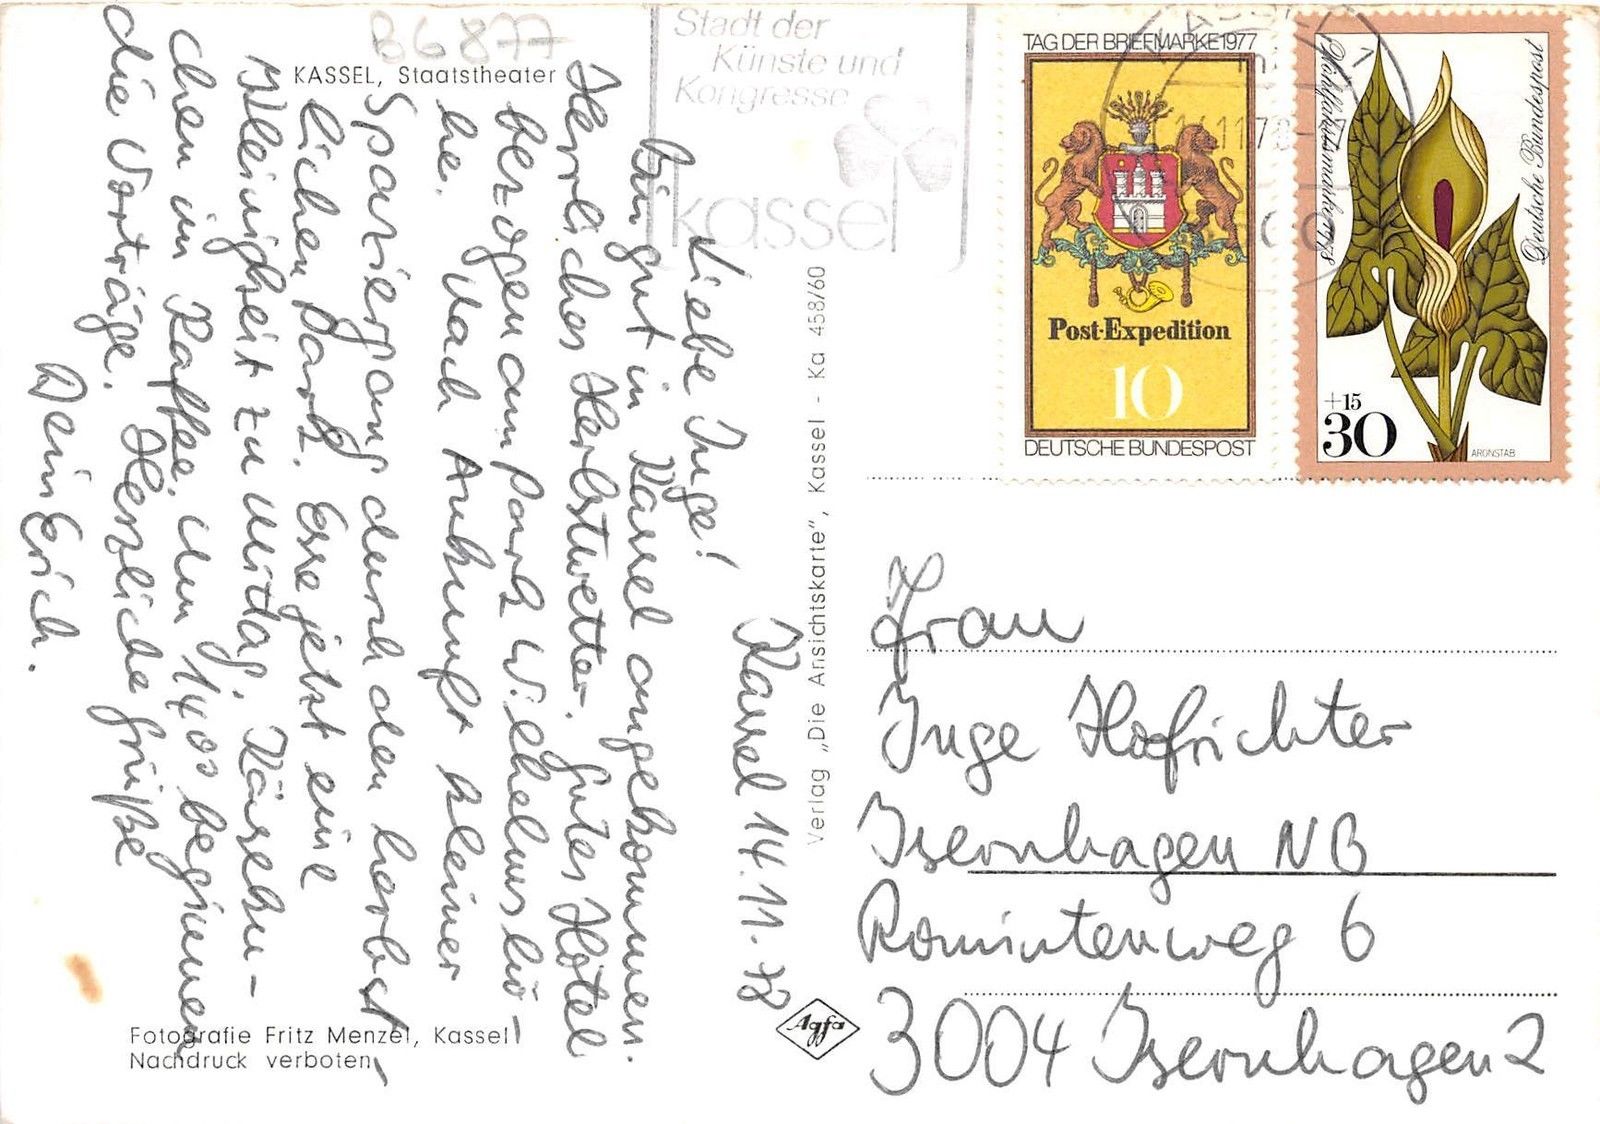 B6877
KASSEL, Staatstheater
Stadt der
Künste und
Kongresse
kassel
TAG DER BRIEFMARKE 1977
Post-Expedition
10
DEUTSCHE BUNDESPOST
Wohlfahrtsmarke 1978
Deutsche Bundespost
+15
30
ARONSTAB
Kassel 14.11.78
Liebe Inge!
Bin gut in Kassel angekommen.
Herrliches Herbstwetter. Gutes Hotel
bezogen am Park Wilhelmshö-
he. Nach Ankunft kleiner
Spaziergang durch den herbst-
lichen Park. Esse jetzt eine
Kleinigkeit zu Mittag, Käseku-
chen im Kaffee. Um 1400 beginnen
die Vorträge. Herzliche Grüße
Dein Erich.
Verlag „Die Ansichtskarte", Kassel - Ka 458/60
Agfa
Fotografie Fritz Menzel, Kassel
Nachdruck verboten
Frau
Inge Hofrichter
Isernhagen NB
Romintenweg 6
3004 Isernhagen 2